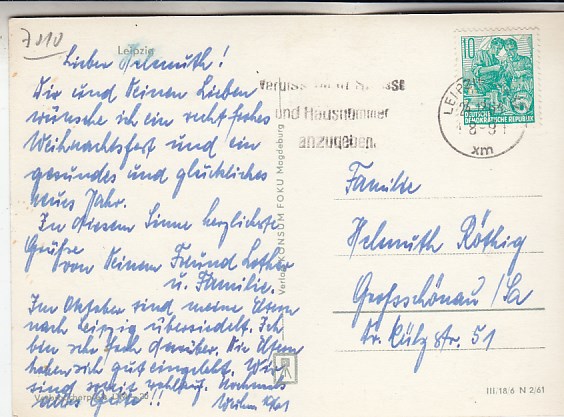 7010
Leipzig
Lieber Helmuth!
Dir und Deinen Lieben
wünsche ich ein recht frohes
Weihnachtsfest und ein
gesundes und glückliches
neues Jahr.
In diesem Sinne herzlichste
Grüße
von Deinem Freund Lothar
u. Familie.
Im Oktober sind meine Eltern
nach Leipzig übersiedelt. Ich
bin sehr froh darüber. Die Eltern
haben sich gut eingelebt. Wir
sind soweit wohlauf. Nochmals
alles Gute!!
Verlag KONSUM FOKU Magdeburg
und Hausnummer
anzugeben.
LEIPZIG
xm
10
DEUTSCHE
DEMOKRATISCHE REPUBLIK
Familie
Helmuth Röthig
Großschönau/Sa
Dr. Külz str. 51
III/18/6 N 2/61